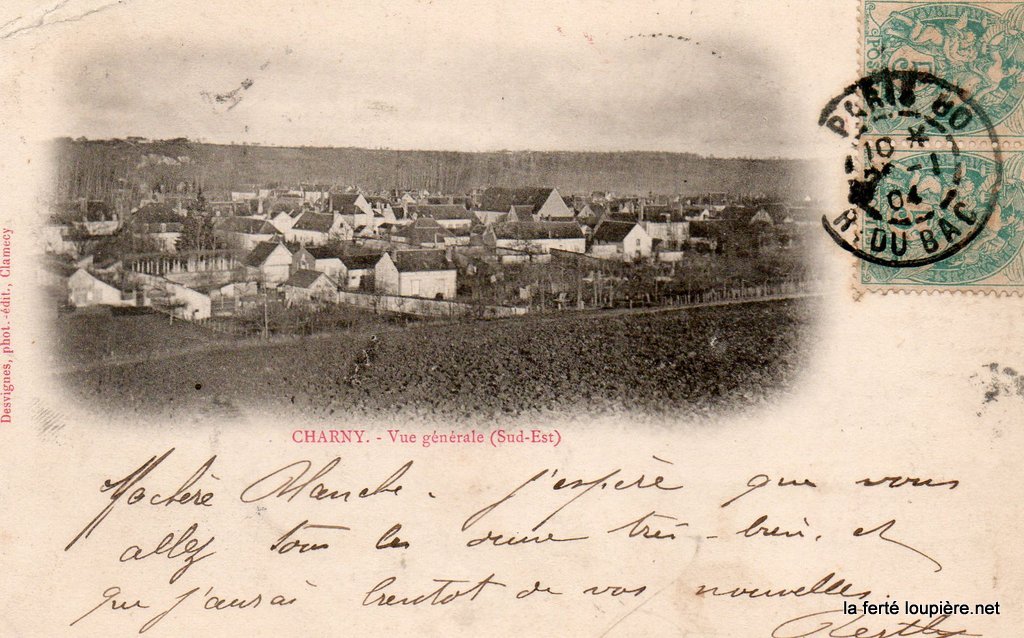 PARIS 80
10 *
-1
04
R. DU BAC
POST
5
Desvignes, phot.-édit., Clamecy
CHARNY. - Vue générale (Sud-Est)
Ma chère Blanche. j'espère que vous
allez tous les deux très-bien, et
que j'aurai bientôt de vos nouvelles.
la ferté loupière.net